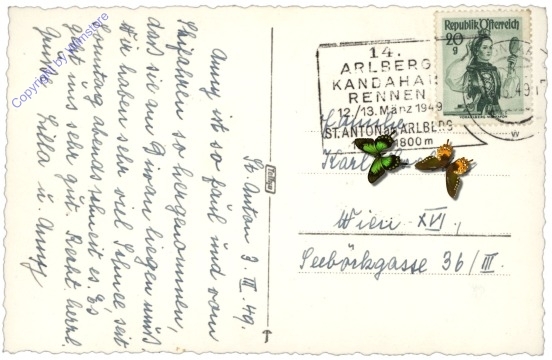 St. Anton 3. III. 49.
Anny ist so faul und vom
Skifahren so hergenommen,
daß sie am Divan liegen muß.
Wir haben sehr viel Schnee, seit
Sonntag abends schneit es. Es
geht uns sehr gut. Recht herzl.
Grüße Lilla u Anny
Republik Österreich
20
g
14.
ARLBERG
KANDAHAR
RENNEN
12./13. März 1949
ST. ANTON a. ARLBERG
1800 m
49.17
Familie
Karl
Wien XVI,
Seeböckgasse 36/III
Copyright by Wimstore